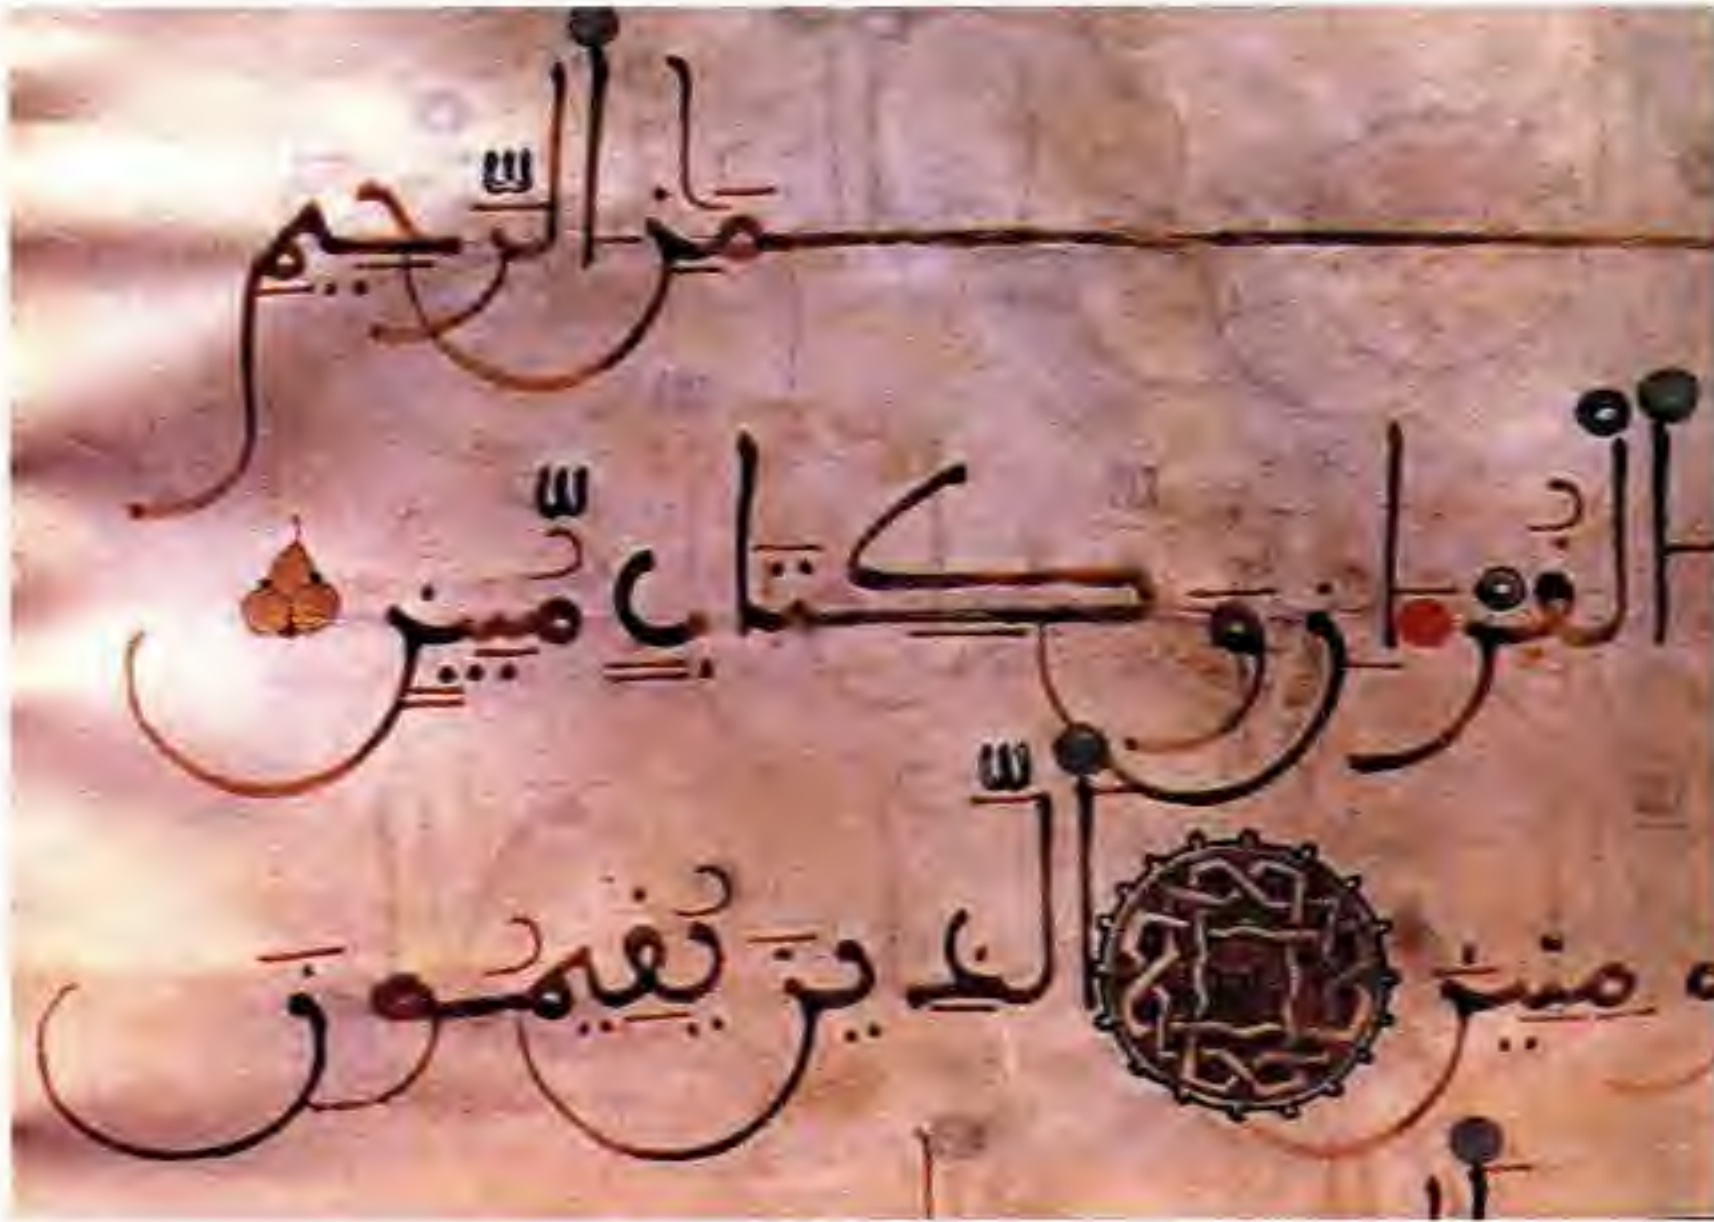 مَٰنِ الرَّحِيمِ
الْقُرْءَانِ وَكِتَابٍ مُّبِينٍ
مِنِينَ الَّذِينَ يُقِيمُونَ